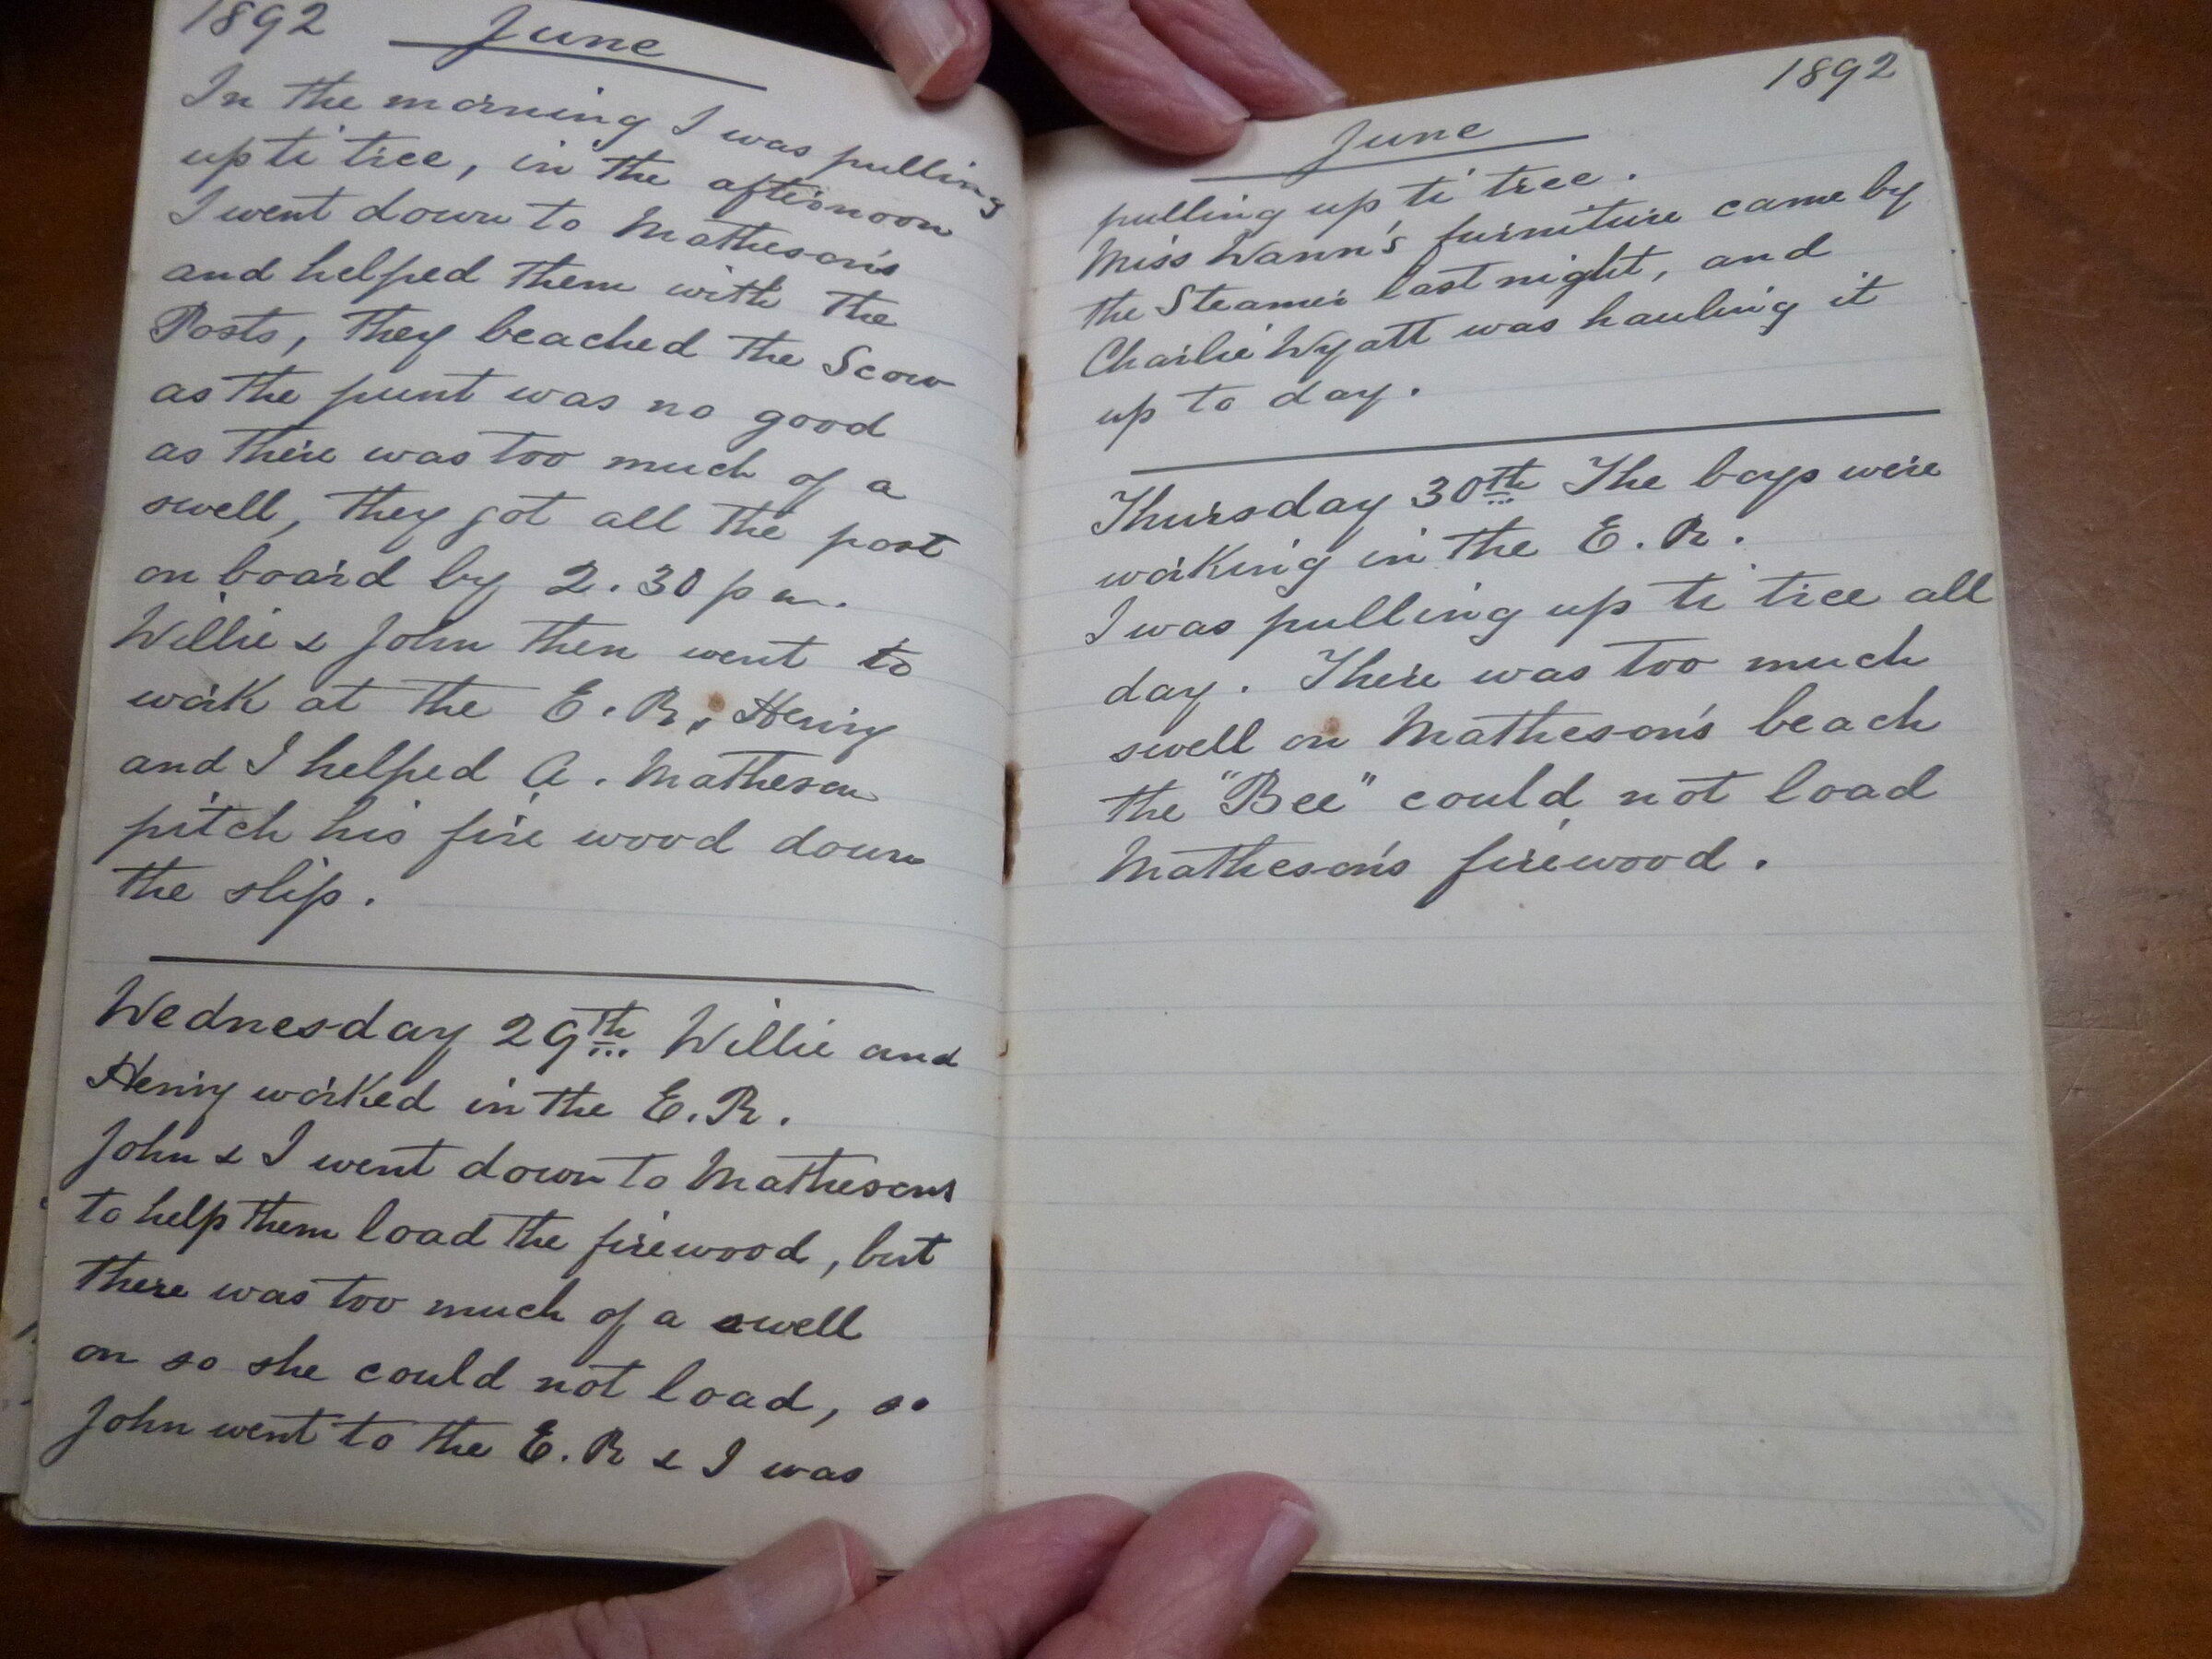 1892 June
In the morning I was pulling
up ti tree, in the afternoon
I went down to Matheson's
and helped them with the
Posts, they beached the Scow
as the punt was no good
as there was too much of a
swell, they got all the post
on board by 2.30 pm.
Willie & John then went to
work at the E.R, Henry
and I helped A. Matheson
pitch his fire wood down
the slip.
Wednesday 29th Willie and
Henry worked in the E.R.
John & I went down to Mathesons
to help them load the firewood, but
there was too much of a swell
on so she could not load, so
John went to the E.R & I was
1892
June
pulling up ti tree.
Miss Wann's furniture came by
the Steamer last night, and
Charlie Wyatt was hauling it
up to day.
Thursday 30th The boys were
working in the E.R.
I was pulling up ti tree all
day. There was too much
swell on Matheson's beach
the "Bee" could not load
Matheson's firewood.